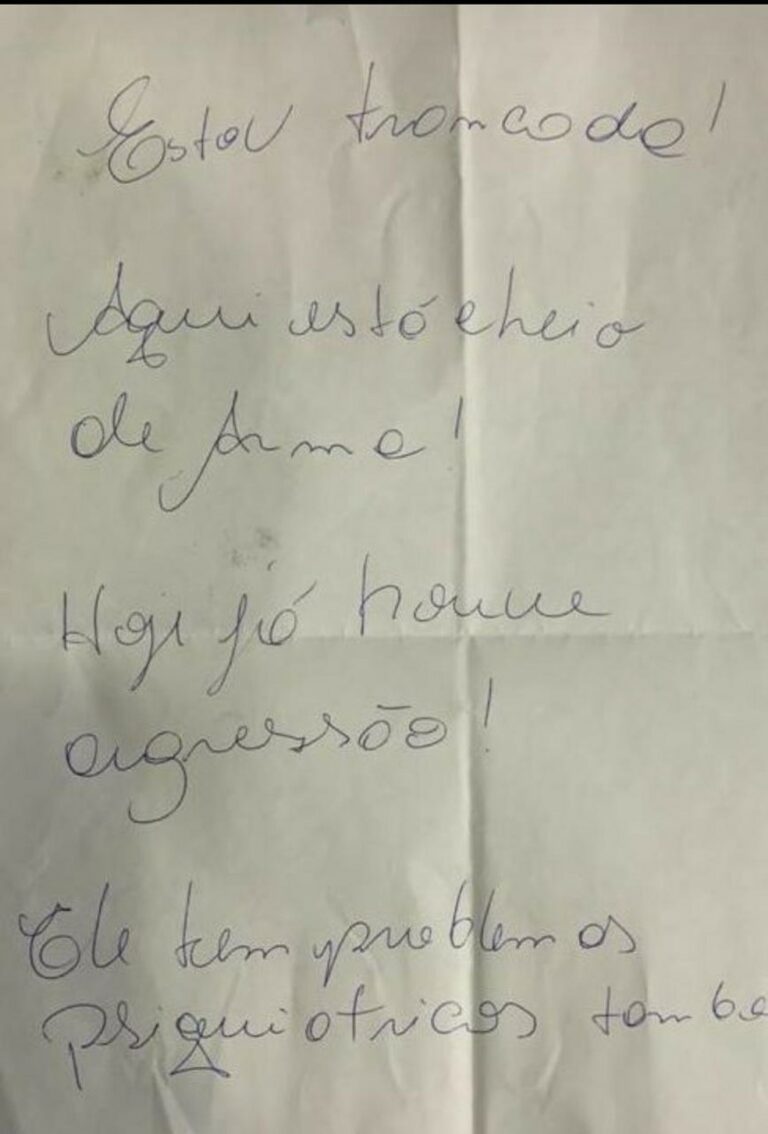 Estou trancada!
Aqui está cheio
de Arma!
Hoje já houve
agressão!
Ele tem problemas
psiquiátricos tambe